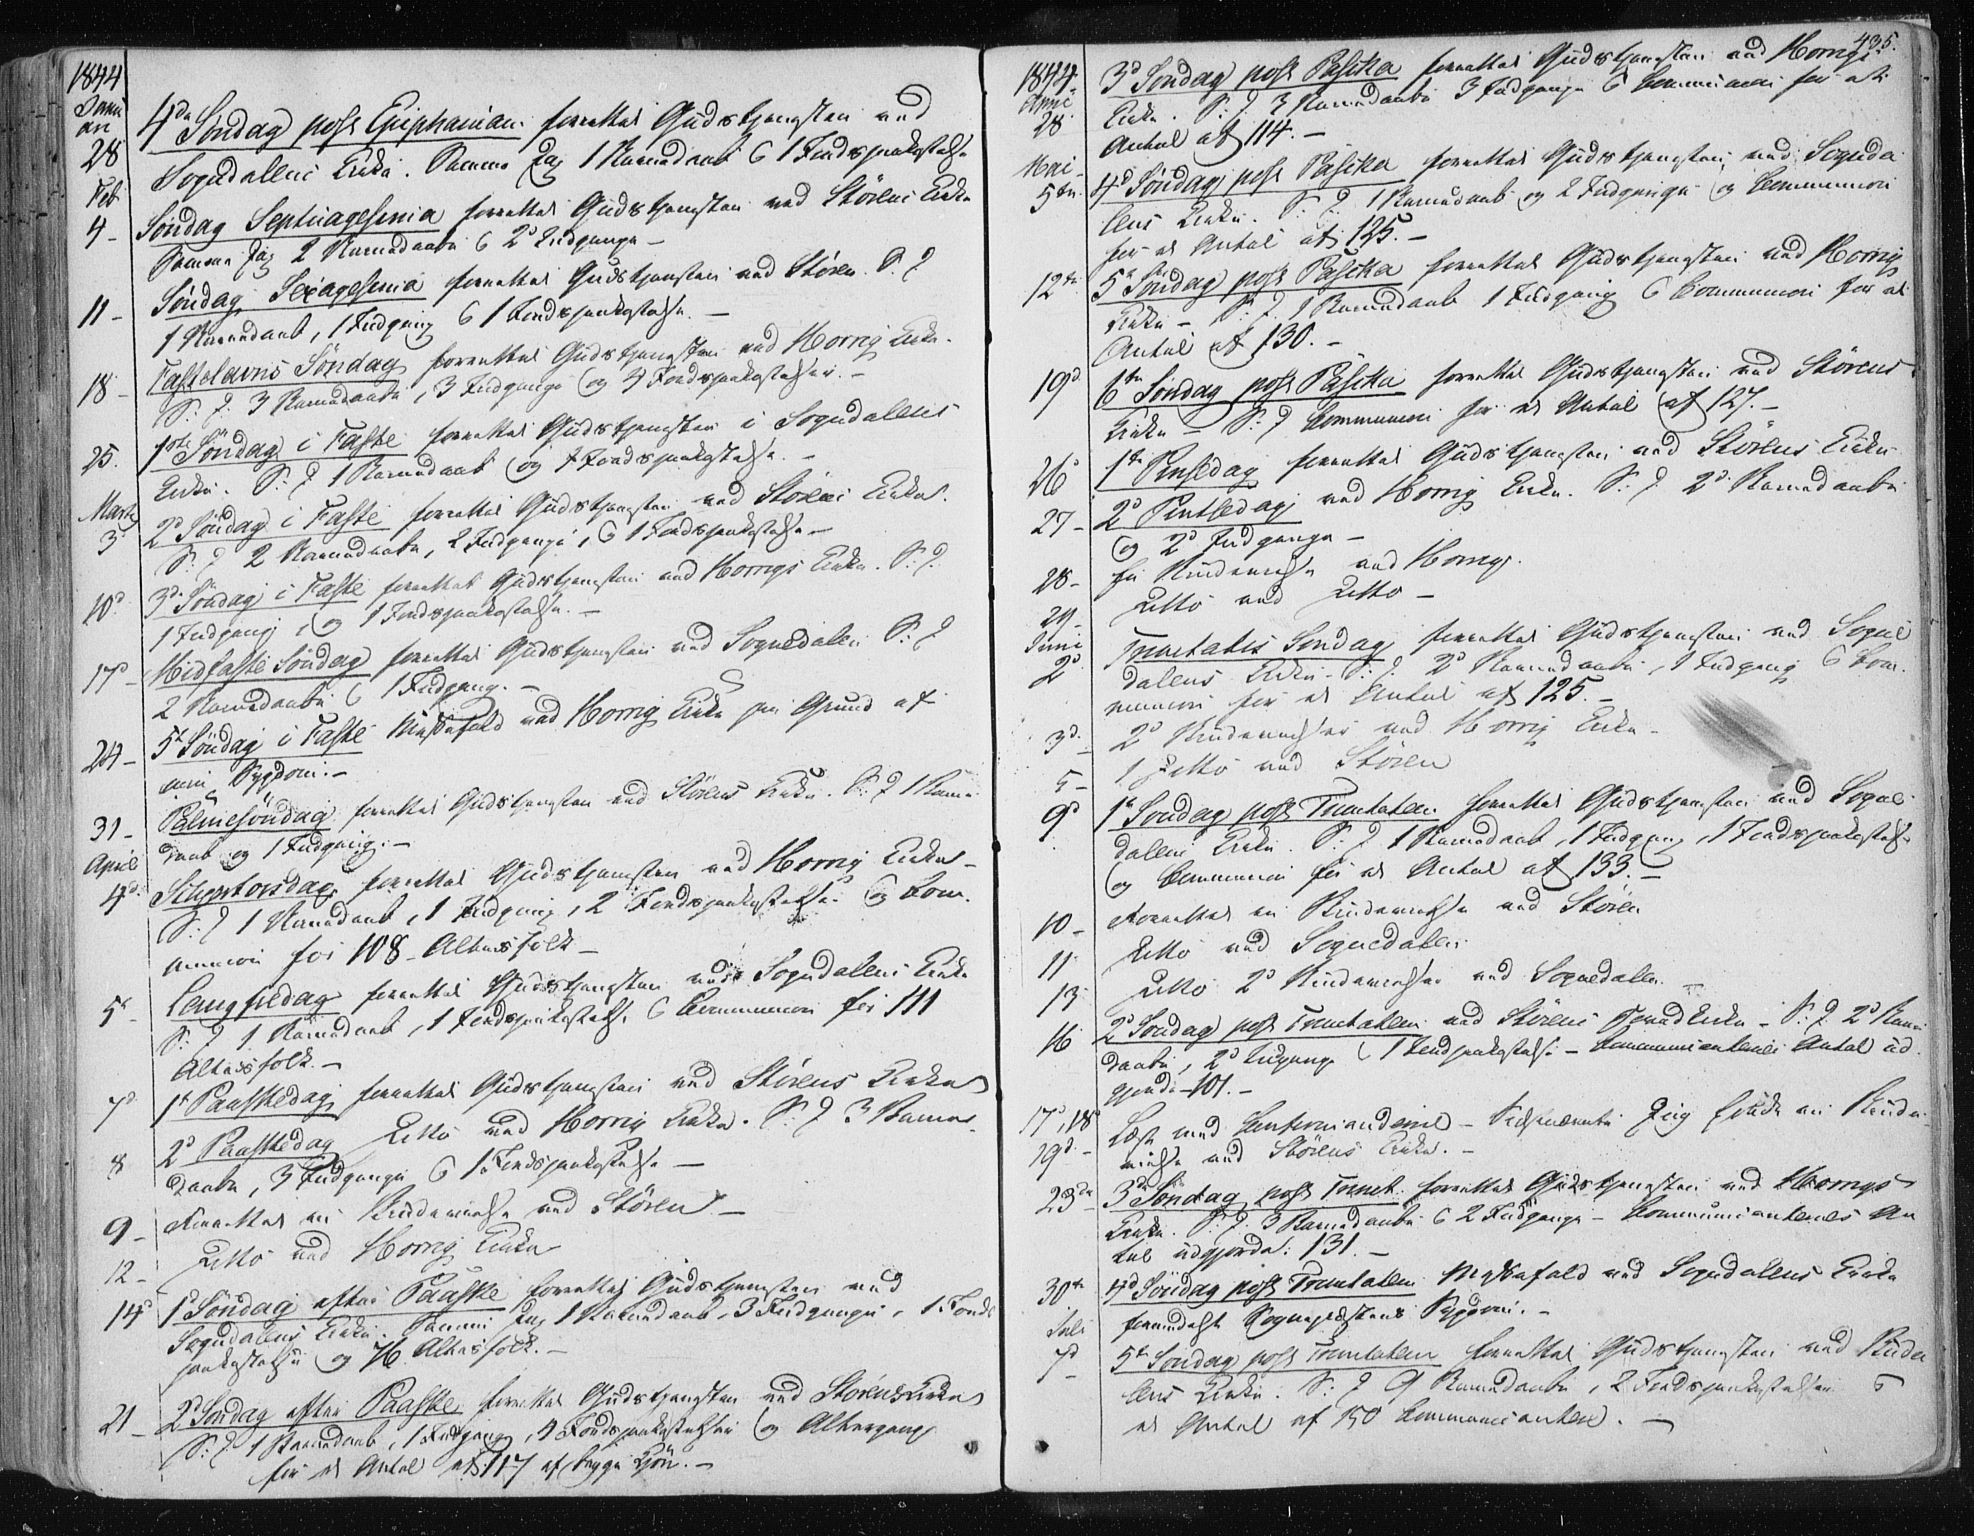 1844
Janu
ari
28 4de Søndag post Epiphaniam forrettet Gudstjenesten ved
Sognedalens Kirke. Samme Dag 1 Barnedaab & 1 Jordspaakastelse
Feb
4 - Søndag Septuagesima forrettet Gudstjenesten ved Størens Kirke
Samme Dag 2 Barnedaabe & 2 Indgange -
11 - Søndag Sexagesima forrettet Gudstjenesten ved Støren. S: D
1 Barnedaab, 1 Indgang & 1 Jordspaakastelse. -
18 - Fastelavns Søndag forrettet Gudstjenesten ved Horrig Kirke.
S: D: 3 Barnedaabe, 3 Indgange og 4 Jordspaakastelser. -
25. 1ste Søndag i Faste forrettet Gudstjenesten i Sognedalens
Kirke. S: D 1 Barnedaab og 1 Jordspaakastelse. -
Marts
3 2d Søndag i Faste forrettet Gudstjenesten ved Størens Kirke.
S: D 2 Barnedaabe, 2 Indgange, & 1 Jordspaakastelse -
10d 3d Søndag i Faste forrettet Gudstjenesten ved Horrigs Kirke. S: D.
1 Indgang, og 1 Jordspaakastelse. -
17d - Midfaste Søndag forrettet Gudstjenesten ved Sognedalen S: D
2 Barnedaabe & 1 Indgang. -
24 - 5t Søndag i Faste Messefald ved Horrig Kirke paa Grund af
min Sygdom. -
31 - Palmesøndag forrettet Gudstjenesten ved Størens Kirke. S: D 1 Barne
daab og 1 Indgang. -
April
4d Skjærtorsdag forrettet Gudstjenesten ved Horrig Kirke -
S: D 1 Barnedaab, 1 Indgang, 2 Jordspaakastelser & Com
munion for 108 - Altersfolk -
5t - Langfredag forrettet Gudstjenesten ved Sognedalens Kirke
S: D 1 Barnedaab, 1 Jordspaakastelse & Communion for 111
Altersfolk. -
7d 1t Paaskedag forrettet Gudstjenesten ved Størens Kirke
8 2d Paaskedag Ditto ved Horrig Kirke. S: D 3 Barne
daabe, 3 Indgange & 1 Jordspaakastelse -
9 - Forrettet en Bededagelse ved Støren -
12 - Ditto ved Horrig Kirke
14d 1d Søndag efter Paaske forrettet Gudstjenesten ved
Sognedalens Kirke. Samme Dag 1 Barnedaab, 3 Indgange, 1 Jords
paakastelse og 76 Altersfolk. -
21 - 2d Søndag efter Paaske forrettet Gudstjenesten ved Størens Kirke
S: D 1 Barnedaab, 1 Indgang, 4 Jordspaakastelser og Altergang
for et Antal af 117 af begge Kjøn. -
435.
1844.
April
28 3d Søndag post Pascha forrettet Gudstjenesten ved Horrigs
Kirke. S: D 3 Barnedaabe 3 Indgange & Communion for et
Antal af 114. -
Mai -
5te 4d Søndag post Pascha forrettet Gudstjenesten ved Sogneda
lens Kirke. S: D 1 Barnedaab og 2 Indgange og Communion
for et Antal af 125. -
12te 5t Søndag post Pascha forrettet Gudstjenesten ved Horrig
Kirke - S: D. 1 Barnedaab 1 Indgang & Communion for et
Antal af 130. -
19d 6te Søndag post Pascha forrettet Gudstjenesten ved Størens
Kirke - S: D Communion for et Antal af 127. -
26d 1te Pinsedag forrettet Gudstjenesten ved Størens Kirke
27 - 2d Pintsedag ved Horrig Kirke. S: D 2d Barnedaabe
og 2d Indgange -
28 - ved Horrig.
29 - Ditto ved Ditto -
Juni
2d Trinitatis Søndag forrettet Gudstjenesten ved Sogne
dalens Kirke. S: D. 2d Barnedaabe, 1 Indgang & Com
munion for et Antal af 125. -
3d - 2d ved Horrig Kirke -
5 - 1 Ditto ved Støren
9d 1t Søndag post Trinitatem forrettet Gudstjenesten ved Sogne
dalens Kirke. S: D 1 Barnedaab, 1 Indgang, 1 Jordspaakastelse
og Communion for et Antal af 133. -
10 - Forrettet en ved Støren
11 Ditto ved Sognedalen
13 Ditto 2d ved Sognedalen -
16 2d Søndag post Trinitatem ved Størens Hoved Kirke - S: D 2d Barne
daabe, 2d Indgange & 1 Jordspaakastelse - Communicanternes Antal ud
gjorde 101. -
17d, 18d Læst med Confirmanderne - Sidstnævnte Dag holdt en
19d - ved Størens Kirke. -
23de 3de Søndag post Trinit. forrettet Gudstjenesten ved Horrigs
Kirke. S: D. 3 Barnedaabe & 2 Indgange - Communicanternes An
tal udgjorde: 131. -
30te 4d Søndag post Trinitatem Messefald ved Sognedalens Kirke
formedelst Sognepræstens Sygdom. -
Juli
7d - 5te Søndag post Trinitatem forrettet Gudstjenesten ved
lens Kirke. S: D 9 Barnedaabe, 2 Jordspaakastelser &
et Antal af 150 Communicantere. -